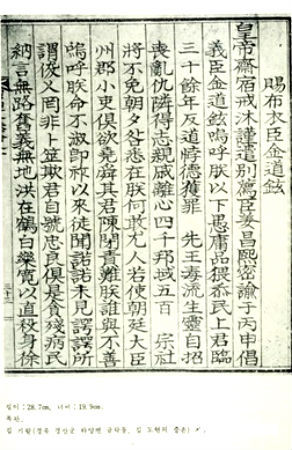 賜布衣臣金道鉉
皇帝齋宿戒沐謹遣別薦臣姜昌熙密諭于丙申倡
義臣金道鉉嗚呼朕以下愚庸品猥忝民上君臨
三十餘年反道悖德獲罪 先王毒流生靈自招
喪亂仇隣得志親戚離心四千邦域五百 宗社
將不免朝夕咎悉在朕何敢尤人若使朝廷大臣
州郡小吏俱欲堯舜其君陳閉責難朕誰與不善
嗚呼朕命不淑卽祚以來徒聞諾諾未見諤諤所
謂俊乂罔非卜筮欺君自號忠良俱是貪殘病民
納言無路奮義無地洪在鶴白樂寬以直殺身徐
길이:28.7cm, 너비:19.9cm.
목판.